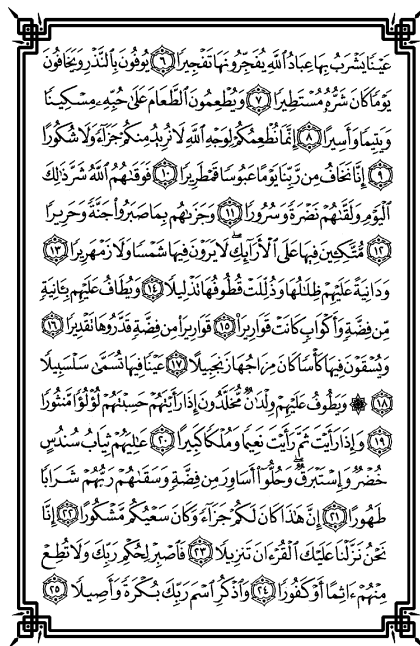 عَيْنًا يَشْرَبُ بِهَا عِبَادُ اللَّهِ يُفَجِّرُونَهَا تَفْجِيرًا ۝٦ يُوفُونَ بِالنَّذْرِ وَيَخَافُونَ
يَوْمًا كَانَ شَرُّهُ مُسْتَطِيرًا ۝٧ وَيُطْعِمُونَ الطَّعَامَ عَلَىٰ حُبِّهِ مِسْكِينًا
وَيَتِيمًا وَأَسِيرًا ۝٨ إِنَّمَا نُطْعِمُكُمْ لِوَجْهِ اللَّهِ لَا نُرِيدُ مِنكُمْ جَزَاءً وَلَا شُكُورًا
۝٩ إِنَّا نَخَافُ مِن رَّبِّنَا يَوْمًا عَبُوسًا قَمْطَرِيرًا ۝١٠ فَوَقَىٰهُمُ اللَّهُ شَرَّ ذَٰلِكَ
الْيَوْمِ وَلَقَّىٰهُمْ نَضْرَةً وَسُرُورًا ۝١١ وَجَزَىٰهُم بِمَا صَبَرُوا جَنَّةً وَحَرِيرًا
۝١٢ مُّتَّكِـِٔينَ فِيهَا عَلَى الْأَرَائِكِ ۖ لَا يَرَوْنَ فِيهَا شَمْسًا وَلَا زَمْهَرِيرًا ۝١٣
وَدَانِيَةً عَلَيْهِمْ ظِلَٰلُهَا وَذُلِّلَتْ قُطُوفُهَا تَذْلِيلًا ۝١٤ وَيُطَافُ عَلَيْهِم بِـَٔانِيَةٍ
مِّن فِضَّةٍ وَأَكْوَابٍ كَانَتْ قَوَارِيرَا۠ ۝١٥ قَوَارِيرَا۟ مِن فِضَّةٍ قَدَّرُوهَا تَقْدِيرًا ۝١٦
وَيُسْقَوْنَ فِيهَا كَأْسًا كَانَ مِزَاجُهَا زَنجَبِيلًا ۝١٧ عَيْنًا فِيهَا تُسَمَّىٰ سَلْسَبِيلًا
۝١٨ ۞ وَيَطُوفُ عَلَيْهِمْ وِلْدَٰنٌ مُّخَلَّدُونَ إِذَا رَأَيْتَهُمْ حَسِبْتَهُمْ لُؤْلُؤًا مَّنثُورًا
۝١٩ وَإِذَا رَأَيْتَ ثَمَّ رَأَيْتَ نَعِيمًا وَمُلْكًا كَبِيرًا ۝٢٠ عَٰلِيَهُمْ ثِيَابُ سُندُسٍ
خُضْرٌ وَإِسْتَبْرَقٌ ۖ وَحُلُّوا أَسَاوِرَ مِن فِضَّةٍ وَسَقَىٰهُمْ رَبُّهُمْ شَرَابًا
طَهُورًا ۝٢١ إِنَّ هَٰذَا كَانَ لَكُمْ جَزَاءً وَكَانَ سَعْيُكُم مَّشْكُورًا ۝٢٢ إِنَّا
نَحْنُ نَزَّلْنَا عَلَيْكَ الْقُرْءَانَ تَنزِيلًا ۝٢٣ فَاصْبِرْ لِحُكْمِ رَبِّكَ وَلَا تُطِعْ
مِنْهُمْ ءَاثِمًا أَوْ كَفُورًا ۝٢٤ وَاذْكُرِ اسْمَ رَبِّكَ بُكْرَةً وَأَصِيلًا ۝٢٥